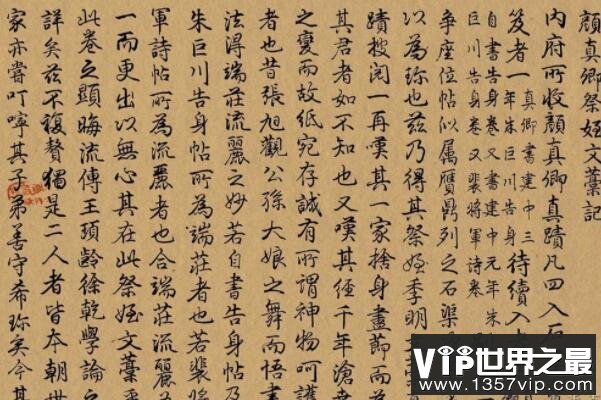 顔真卿祭姪文藁記
内府所收顔真卿真蹟凡四入石
笈者一
真卿書建中三
年朱巨川告身
待續入
自書告身卷又書建中元年朱
巨川告身卷又裴將軍詩卷
争座位帖似属贋鼎列之石渠
以為珎也兹乃得其祭姪季明文
蹟披閲一再嘆其一家捨身盡節而為
其君者如不知也又嘆其經千年滄
之變而故紙宛存誠有所謂神物呵護
者也昔張旭觀公孫大娘之舞而悟書
法得端莊流麗之妙若自書告身帖
朱巨川告身帖所為端莊者也若裴將
軍詩帖所為流麗者也合端莊流麗
一而更出以無心其在此祭姪文藁
此卷之顯晦流傳王頊齡徐乾學論之
詳矣兹不復贅獨是二人者皆本朝世
家亦嘗叮嚀其子弟善守希珎矣今其
VIP世界之最
www.1357vip.com